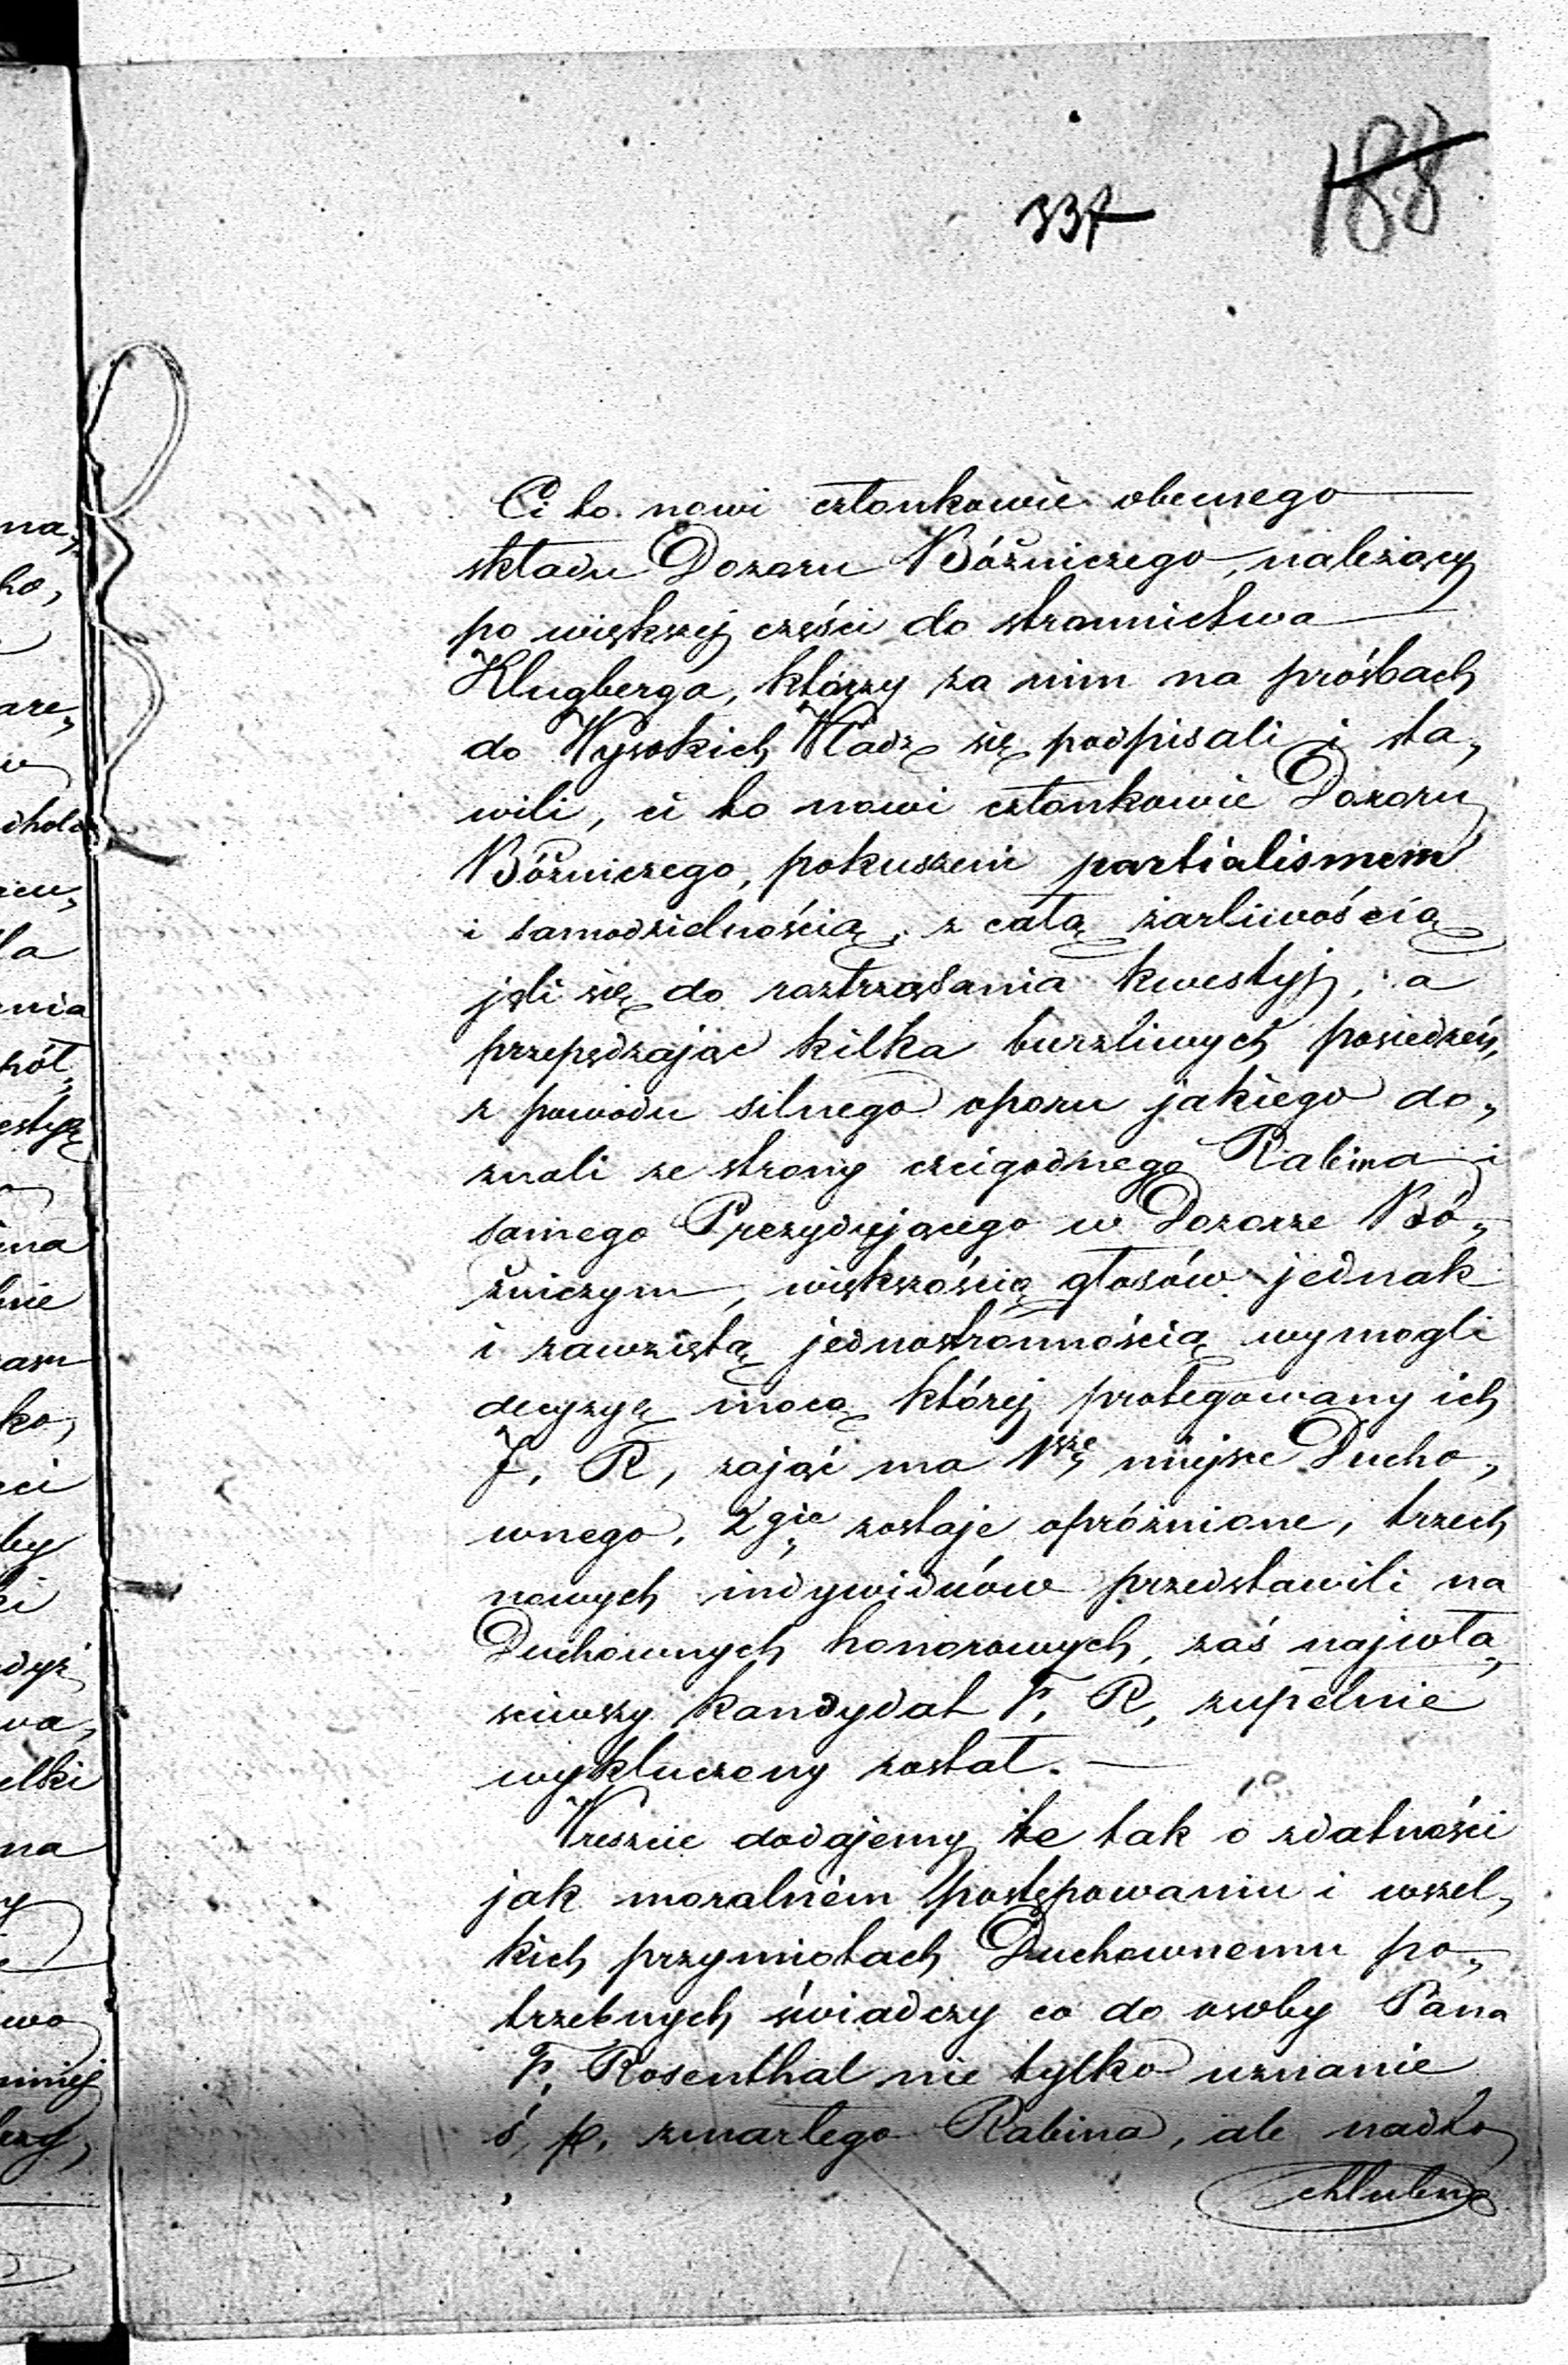 188
337
Ci to nowi członkowie obecnego
składu Dozoru Bóżniczego, należący
po większej części do stronnictwa
Klugberga, którzy za nim na prośbach
do Wysokich Władz się podpisali i sta„
wili, ci to nowi członkowie Dozoru
Bóżniczego, pokuszeni partialismem
i samodzielnością, z całą żarliwością
jęli się do roztrząsania kwestyj, a
przepędzając kilka burzliwych posiedzeń,
z powodu silnego oporu jakiego do„
znali ze strony czcigodnego Rabina i
samego Prezydującego w Dozorze Bó„
żniczym, większością głosów jednak
i zawziętą jednostronnością wymogli
decyzyę mocą której protegowany ich
J. R, zająć ma 1sze miejsce Ducho„
wnego, 2gie zostaje opróżnione, trzech
nowych indywiduów przedstawili na
Duchownych honorowych, zaś najwła„
ściwszy kandydat F. R, zupełnie
wykluczony został. —
Wreszcie dodajemy że tak o zdatności
jak moralném postępowaniu i wszel„
kich przymiotach Duchownemu po„
trzebnych świadczy co do osoby Pana
F. Rosenthal nie tylko uznanie
ś. p. zmarłego Rabina, ale nadto
chlubne
na„
ho,
are„
w
dhol
ła
nia
pół„
estyę
ina
nie
ko,
ci
by
ki
dyż
wa„
elki
na
wo
mniej